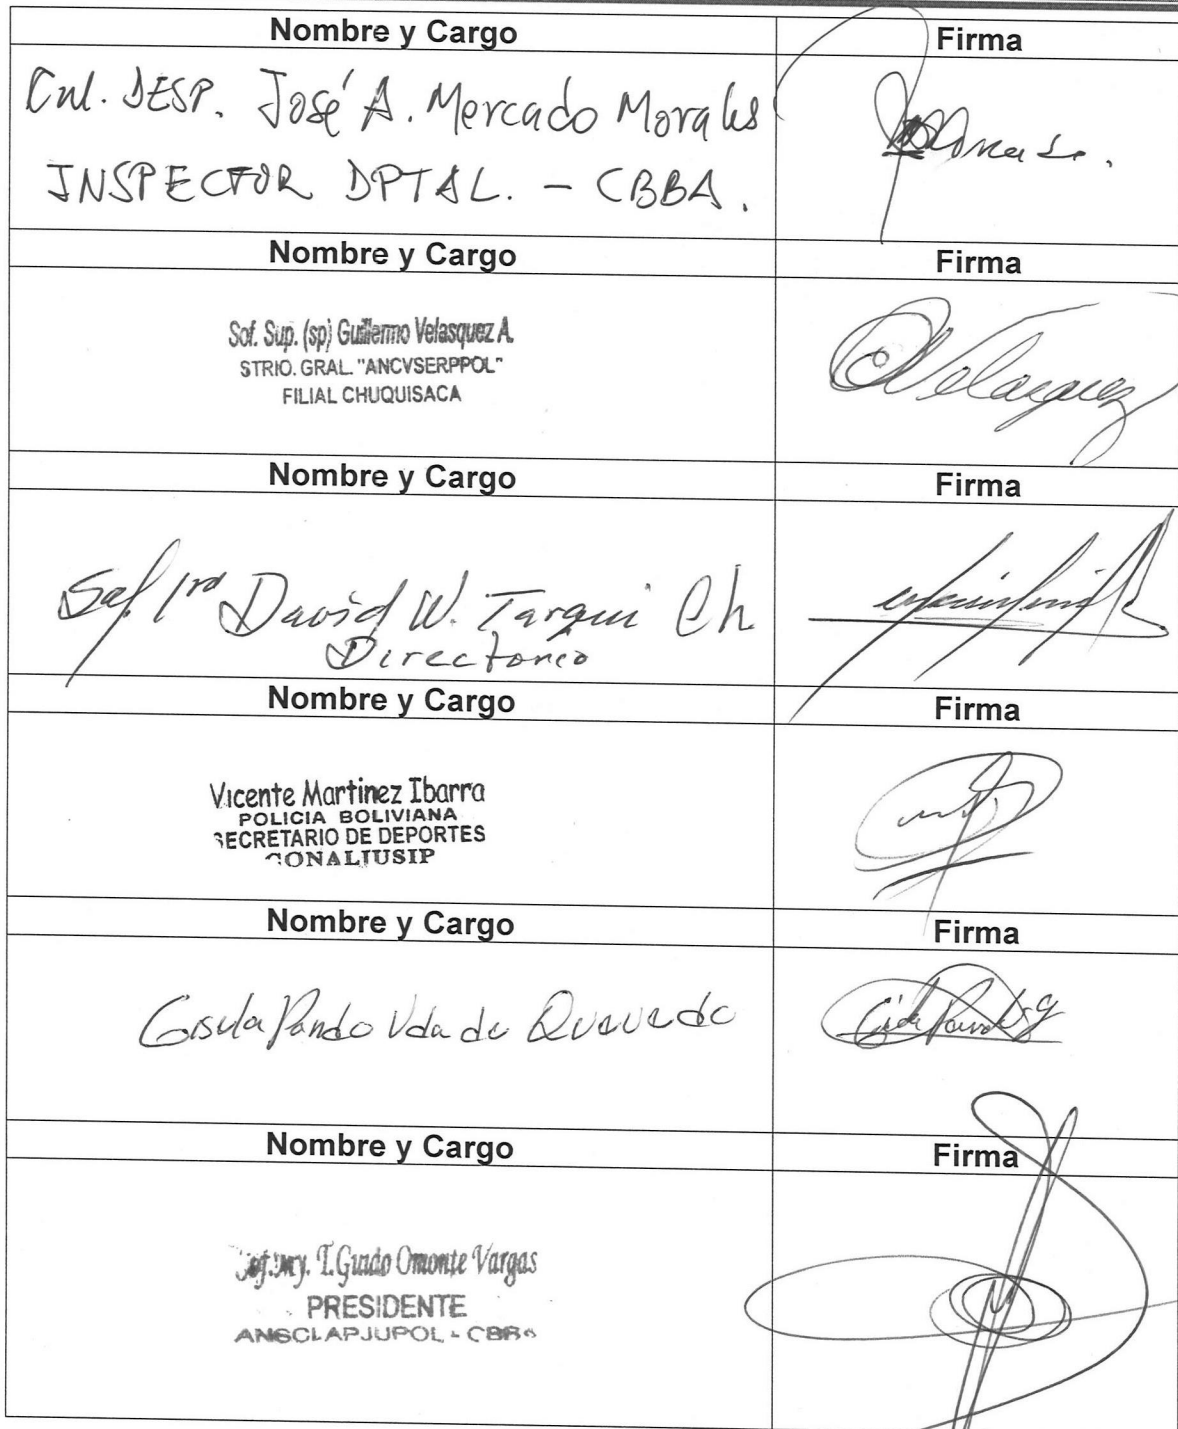 Nombre y Cargo Firma
Cnl. DESP. José A. Mercado Morales
INSPECTOR DPTAL. - CBBA.
Nombre y Cargo Firma
Sof. Sup. (sp) Guillermo Velasquez A.
STRIO. GRAL. "ANCVSERPPOL"
FILIAL CHUQUISACA
Velasquez
Nombre y Cargo Firma
Sof. 1ro David W. Tarqui Ch
Directorio
Nombre y Cargo Firma
Vicente Martinez Ibarra
POLICIA BOLIVIANA
SECRETARIO DE DEPORTES
CONALJUSIP
Nombre y Cargo Firma
Gisela Pando Vda de Quevedo
Nombre y Cargo Firma
Sof. my. T. Guido Omonte Vargas
PRESIDENTE
ANSCLAPJUPOL - CBBA